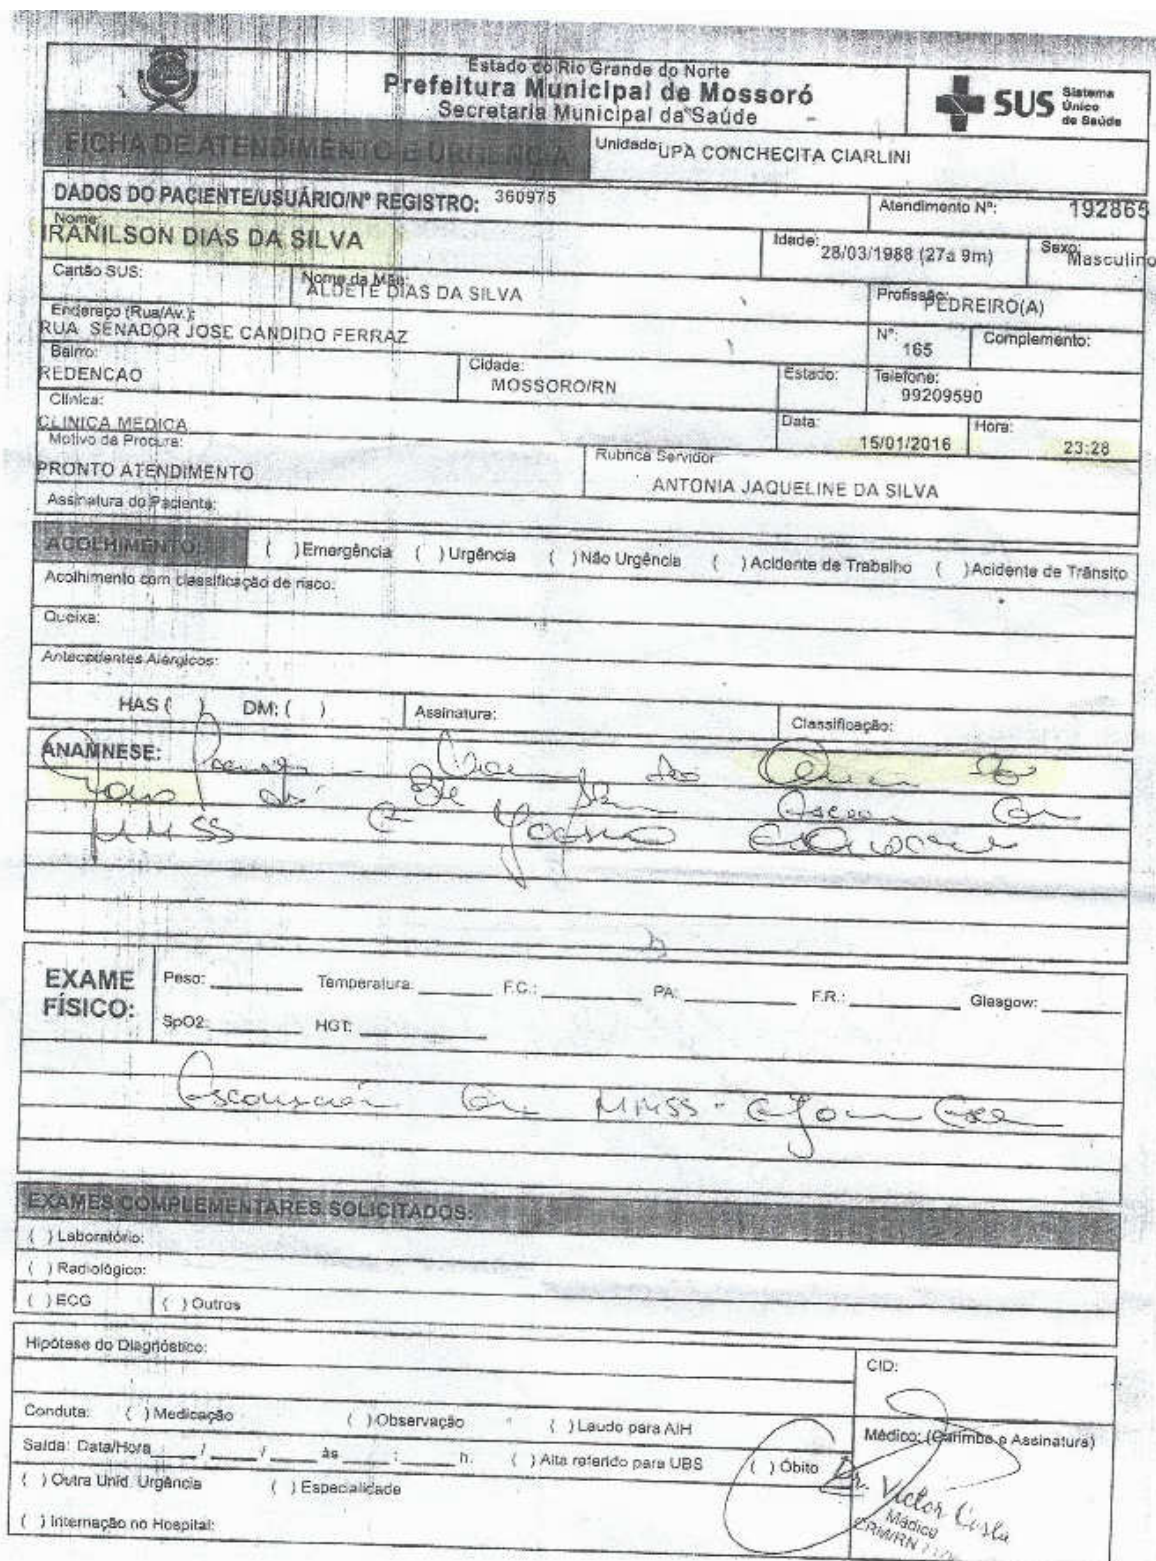 Estado do Rio Grande do Norte
Prefeitura Municipal de Mossoró
Secretaria Municipal da Saúde
SUS Sistema Único de Saúde
FICHA DE ATENDIMENTO E URGENCIA
Unidade UPA CONCHECITA CIARLINI
DADOS DO PACIENTE/USUÁRIO/Nº REGISTRO: 360975
Atendimento Nº: 192865
Nome: IRANILSON DIAS DA SILVA
Idade: 28/03/1988 (27a 9m)
Sexo: Masculino
Cartão SUS:
Nome da Mãe: ALDETE DIAS DA SILVA
Profissão: PEDREIRO(A)
Endereço (Rua/Av.): RUA SENADOR JOSE CANDIDO FERRAZ
Nº: 165
Complemento:
Bairro: REDENCAO
Cidade: MOSSORO/RN
Estado:
Telefone: 99209590
Clínica: CLINICA MEDICA
Data: 15/01/2016
Hora: 23:28
Motivo da Procura: PRONTO ATENDIMENTO
Rubrica Servidor: ANTONIA JAQUELINE DA SILVA
Assinatura do Paciente:
ACOLHIMENTO: ( )Emergência ( )Urgência ( )Não Urgência ( )Acidente de Trabalho ( )Acidente de Trânsito
Acolhimento com classificação de risco:
Queixa:
Antecedentes Alérgicos:
HAS ( ) DM: ( ) Assinatura: Classificação:
ANAMNESE:
MMSS
EXAME FÍSICO:
Peso: Temperatura: F.C.: PA: F.R.: Glasgow:
SpO2: HGT:
MMSS
EXAMES COMPLEMENTARES SOLICITADOS:
( ) Laboratório:
( ) Radiológico:
( ) ECG ( ) Outros
Hipótese do Diagnóstico:
CID:
Conduta: ( ) Medicação ( ) Observação ( ) Laudo para AIH
Médico: (Carimbo e Assinatura)
Saída: Data/Hora / / às : h. ( ) Alta referido para UBS ( ) Óbito
( ) Outra Unid. Urgência ( ) Especialidade
Dr. Victor Costa
Médico
CRM/RN
( ) Internação no Hospital: